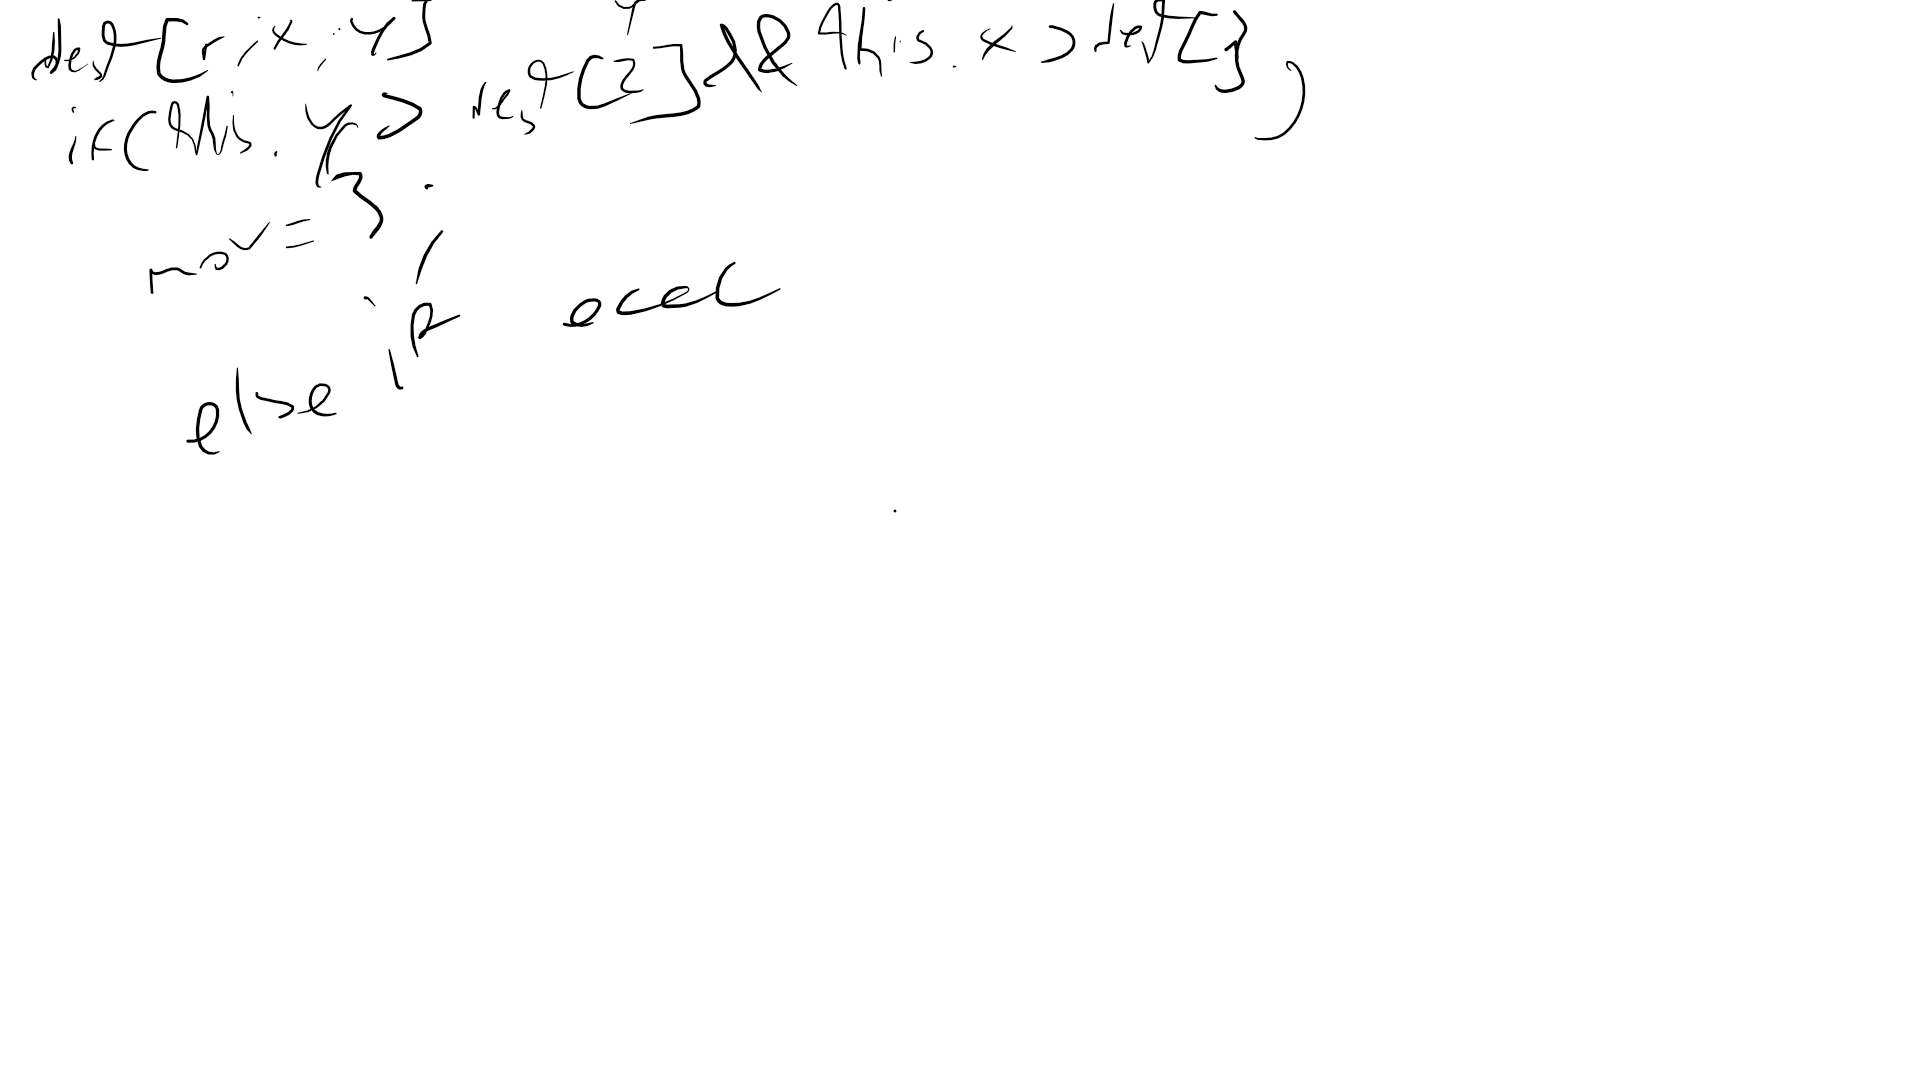 dest[r,x,y]
if(this.y > dest[2] && this.x > dest[], )
mov = 3;
else if